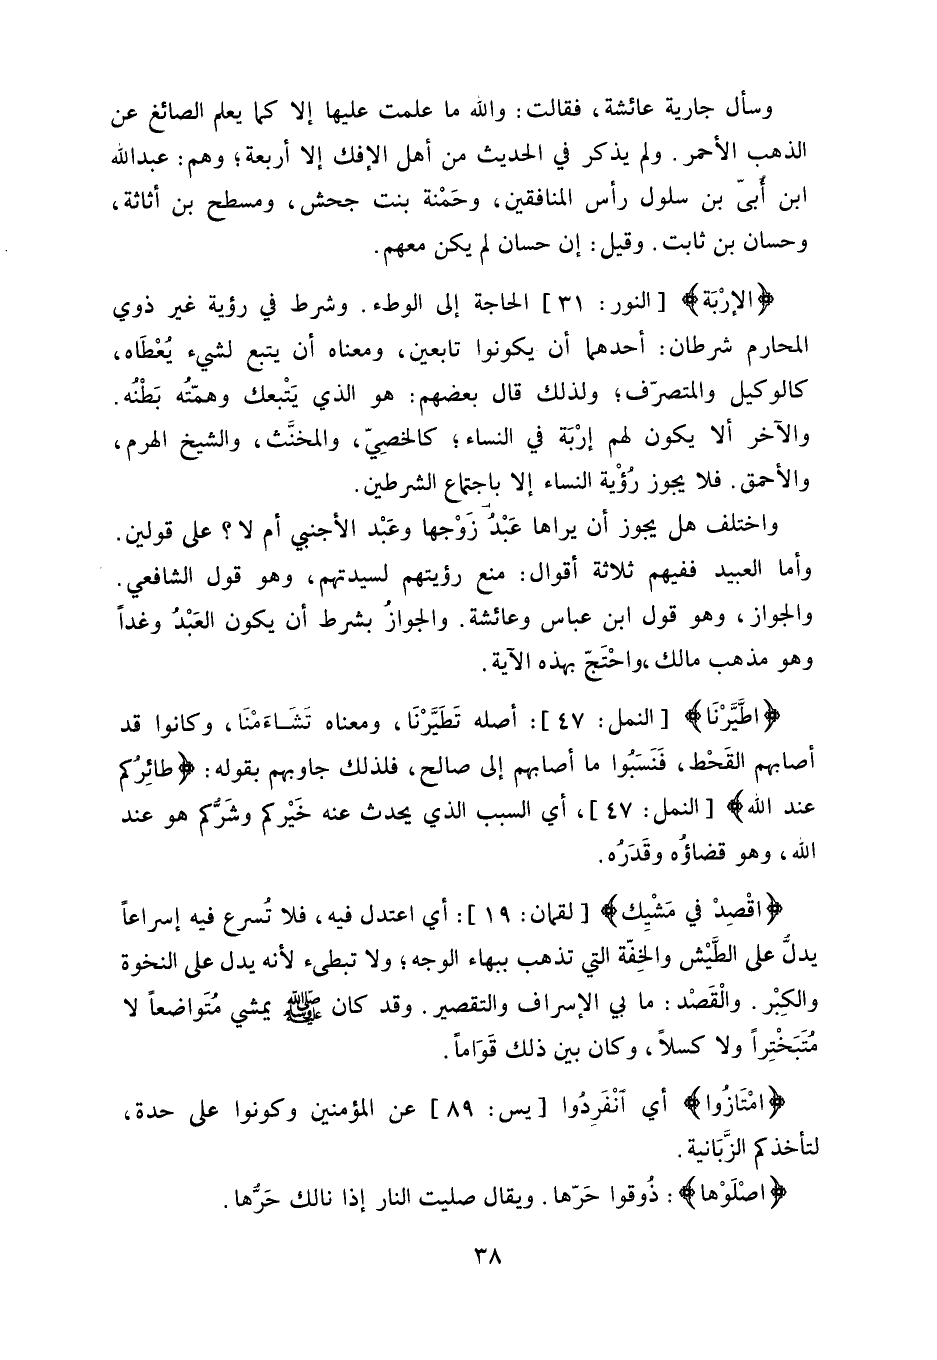 وسأل جارية عائشة، فقالت: والله ما علمت عليها إلا كما يعلم الصائغ عن
الذهب الأحمر. ولم يذكر في الحديث من أهل الإفك إلا أربعة؛ وهم: عبدالله
ابن أُبيّ بن سلول رأس المنافقين، وحَمْنة بنت جحش، ومسطح بن أثاثة،
وحسان بن ثابت. وقيل: إن حسان لم يكن معهم.
﴿الإرْبَة﴾ [النور: ٣١] الحاجة إلى الوطء. وشرط في رؤية غير ذوي
المحارم شرطان: أحدهما أن يكونوا تابعين، ومعناه أن يتبع لشيء يُعْطَاه،
كالوكيل والمتصرّف؛ ولذلك قال بعضهم: هو الذي يَتْبعك وهمّتُه بَطْنُه.
والآخر ألا يكون لهم إرْبَة في النساء؛ كالخصِيّ، والمخنَّث، والشيخ الهرم،
والأحمق. فلا يجوز رُؤْية النساء إلا باجتماع الشرطين.
واختلف هل يجوز أن يراها عَبْدُ زَوْجها وعَبْد الأجنبي أم لا؟ على قولين.
وأما العبيد ففيهم ثلاثة أقوال: منع رؤيتهم لسيدتهم، وهو قول الشافعي.
والجواز، وهو قول ابن عباس وعائشة. والجوازُ بشرط أن يكون العَبْدُ وغداً
وهو مذهب مالك،واحْتَجّ بهذه الآية.
﴿اطَّيَّرْنَا﴾ [النمل: ٤٧]: أصله تَطَيَّرْنَا، ومعناه تَشَاءَمْنَا، وكانوا قد
أصابهم القَحْط، فَنَسَبُوا ما أصابهم إلى صالح، فلذلك جاوبهم بقوله: ﴿طائِرُكم
عند الله﴾ [النمل: ٤٧]، أي السبب الذي يحدث عنه خَيْركم وشَرُّكم هو عند
الله، وهو قضاؤُه وقَدَرُه.
﴿اقْصِدْ في مَشْيِك﴾ [لقمان: ١٩]: أي اعتدل فيه، فلا تُسرع فيه إسراعاً
يدلُّ على الطَّيْش والخِفّة التي تذهب ببهاء الوجه؛ ولا تبطىء لأنه يدل على النخوة
والكِبْر. والْقَصْد: ما بي الإسراف والتقصير. وقد كان ﷺ يمشي مُتَواضعاً لا
مُتَبَخْتِراً ولا كسلاً، وكان بين ذلك قَوَاماً.
﴿امْتَازُوا﴾ أي ٱنْفَرِدُوا [يس: ٨٩] عن المؤمنين وكونوا على حدة،
لتأخذكم الزَّبَانية.
﴿اصْلَوْها﴾: ذُوقوا حَرّها. ويقال صليت النار إذا نالك حَرُّها.
٣٨